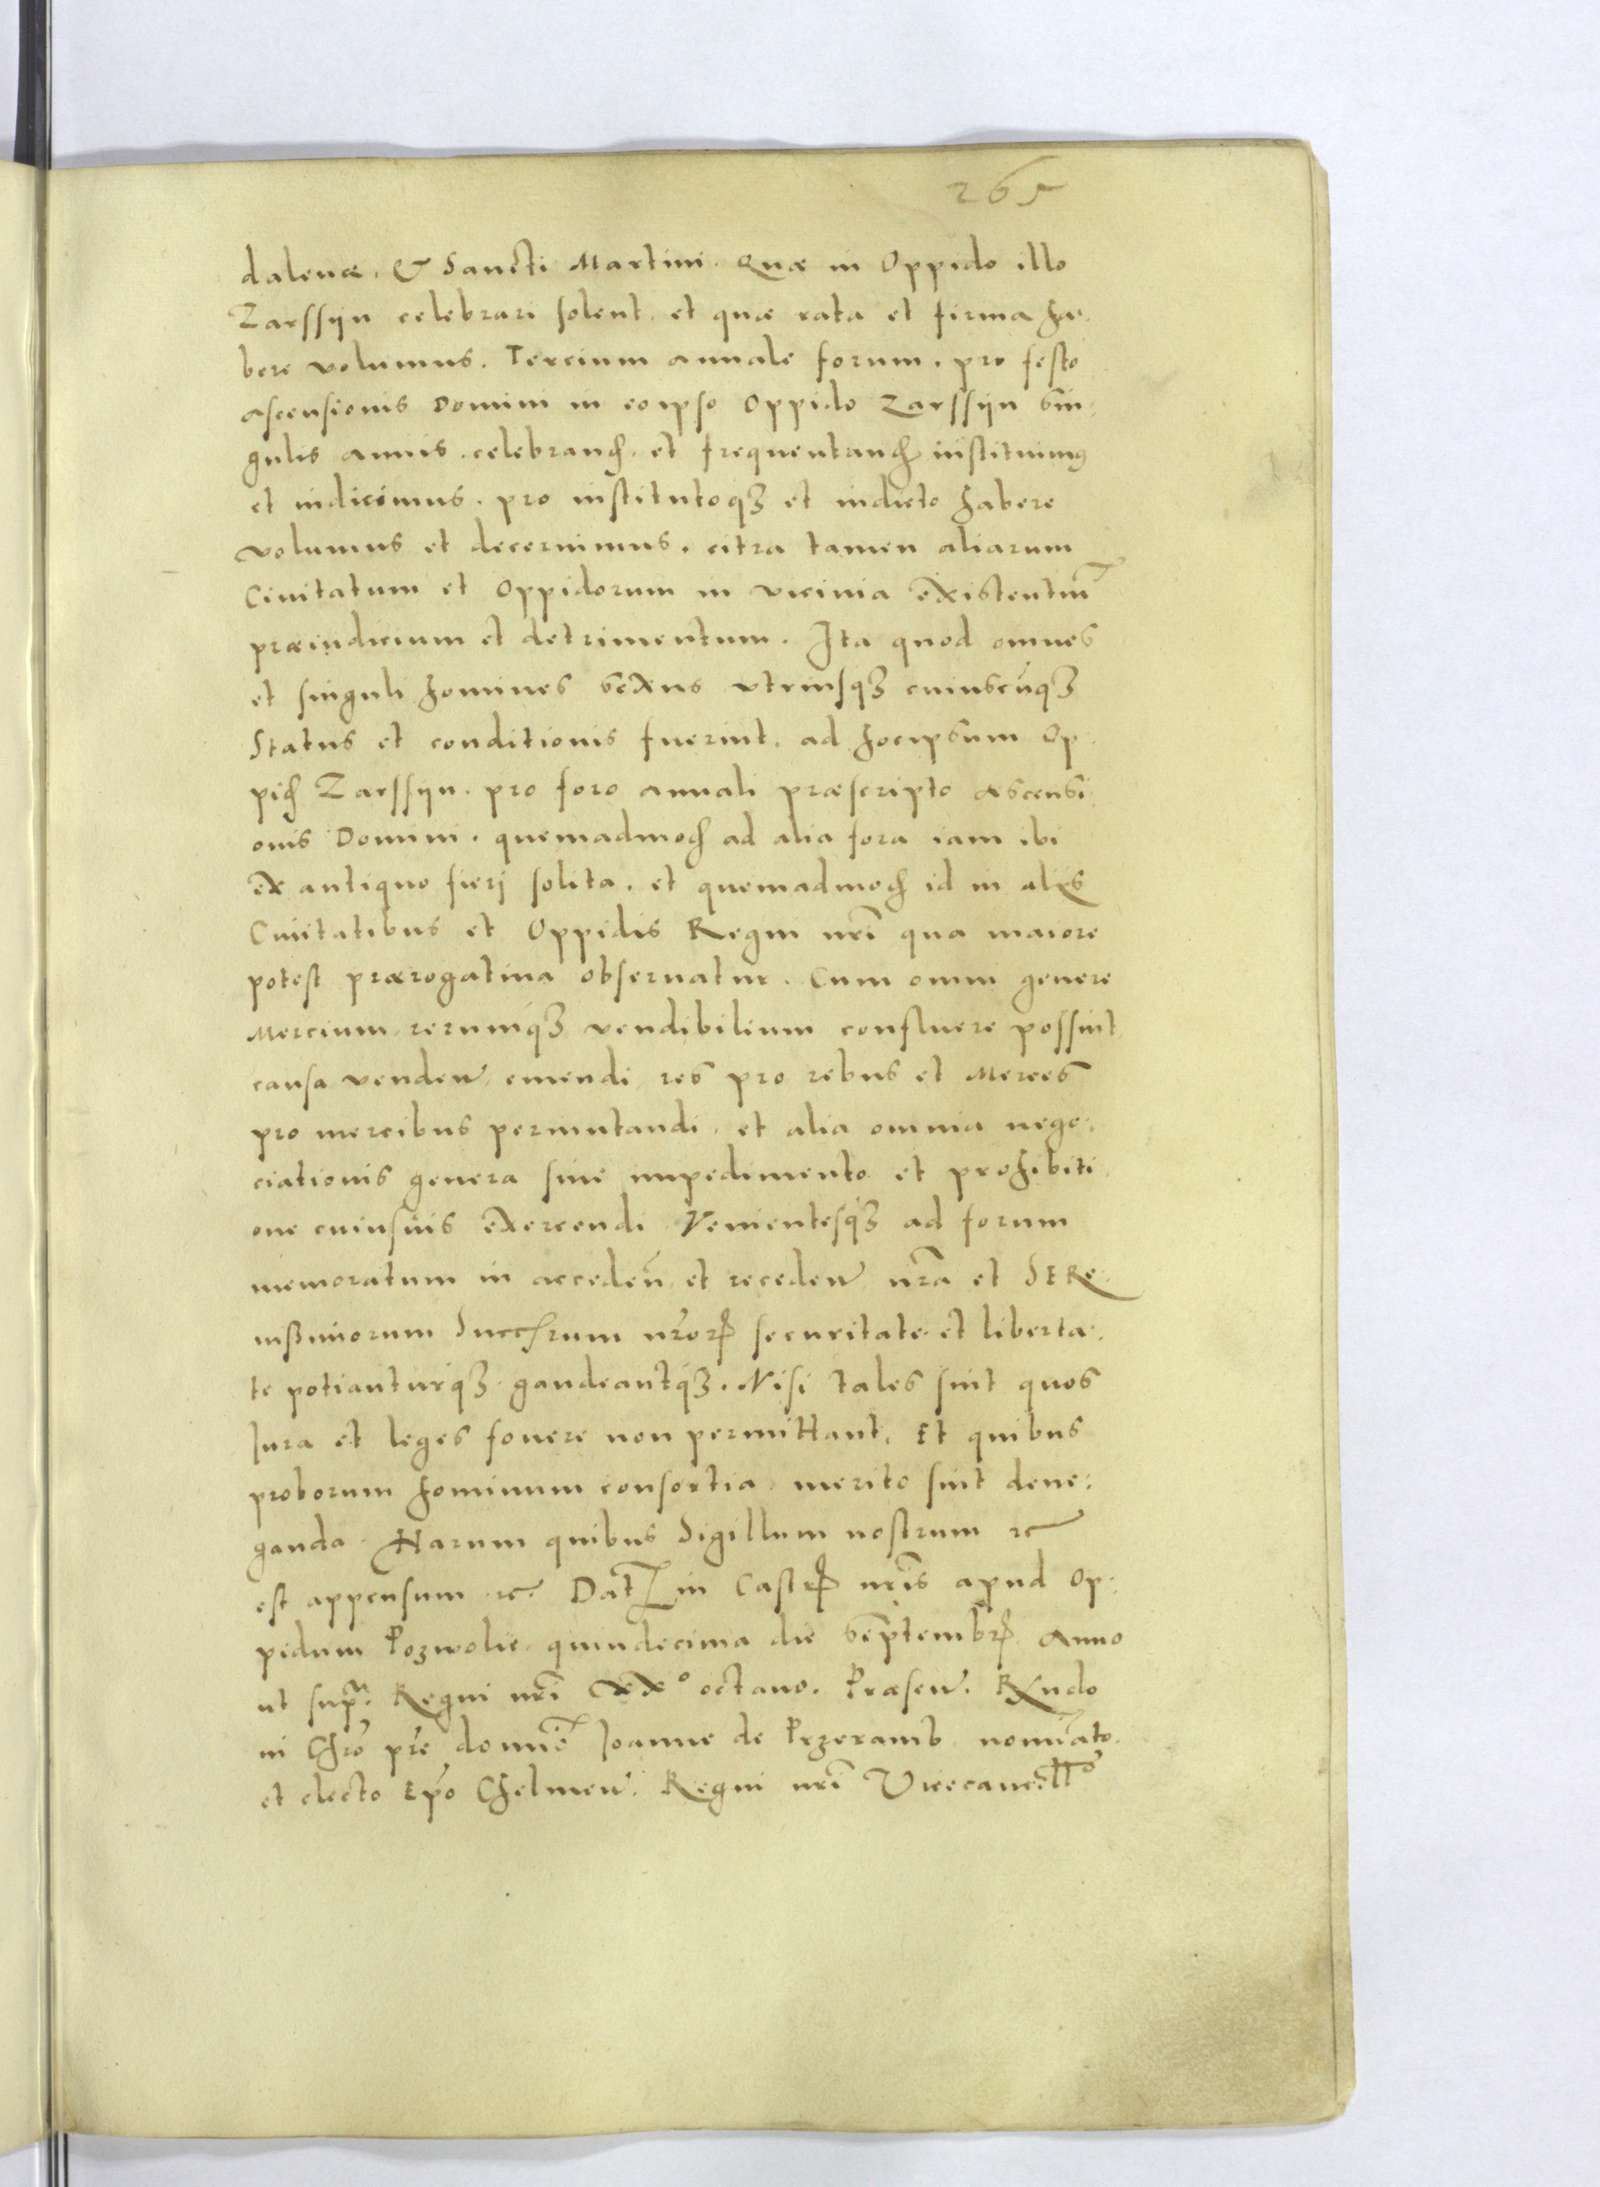 265
dalenæ, & Sancti Martini. Quæ in Oppido illo
Zarssijn celebrari solent, et quæ rata et firma ha-
bere volumus. Tercium annale forum, pro festo
Ascensionis Domini in eoipso Oppido Zarssijn sin-
gulis annis celebrand. et frequentand. instituimus
et indicimus, pro institutoq3 et indicto habere
volumus et decernimus, citra tamen aliarum
Civitatum et Oppidorum in vicinia existentiu
præiudicium et detrimentum. Ita quod omnes
et singuli homines sexus utriusq3 cuiuscuq3
Status et conditionis fuerint, ad hocipsum Op-
pid. Zarssijn, pro foro annali præscripto Ascensi-
onis Domini, quemadmod. ad alia fora iam ibi
ex antiquo fieri solita, et quemadmod. id in alijs
Civitatibus et Oppidis Regni nri qua maiore
potest prærogativa observatur. Cum omni genere
Mercium rerumq3 vendibilium confluere possint
causa venden, emendi, res pro rebus et Merces
pro mercibus permutandi, et alia omnia nego-
ciationis genera sine impedimento et prohibiti-
one cuiusvis exercendi. Venientesq3 ad forum
memoratum in acceden. et receden. nra et SERe-
nissimorum Succrum nror. securitate et liberta-
te potianturq3 gaudeantq3. Nisi tales sint quos
Iura et leges fovere non permittant, Et quibus
proborum hominum consortia merito sint dene-
ganda. Harum quibus Sigillum nostrum rc
est appensum rc. Dat. in Castr. nris apud Op-
pidum Pozwolie, quindecima die Septembr. Anno
ut supra. Regni nri XXX° octavo. Præsen. Rndo
in Chro pre domino Ioanne de Przeramb nominato
et electo Epo Chelmen. Regni nri Vicecancell°